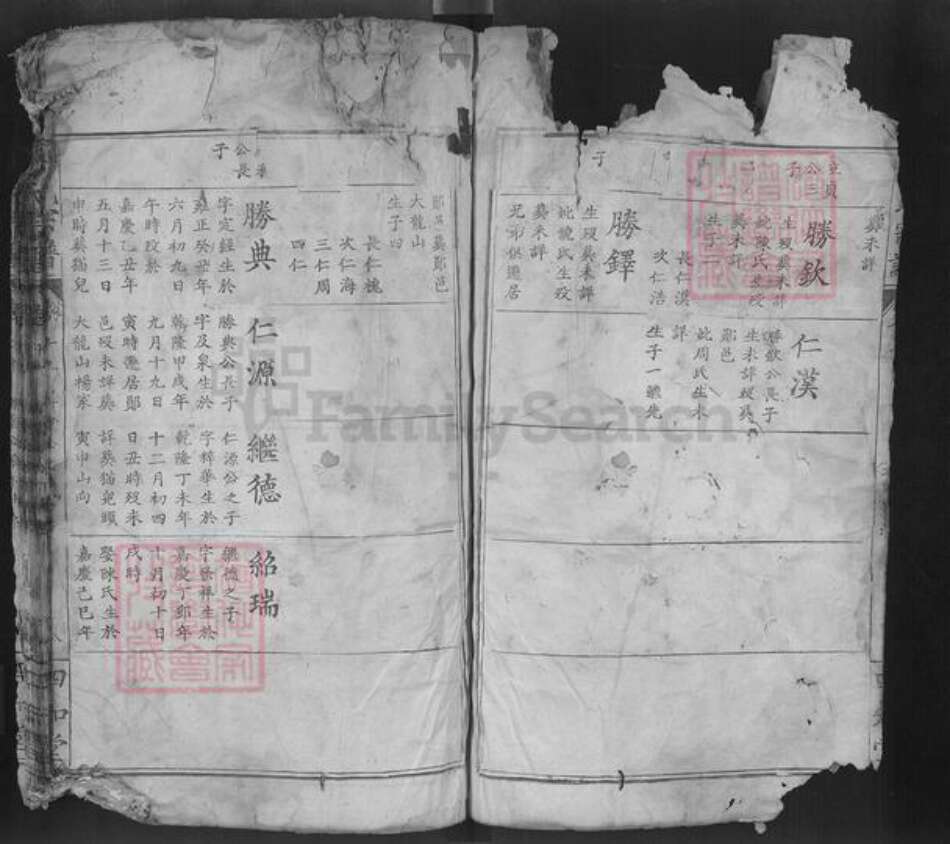 葬未詳
公三
子
勝欽
生歿葬未詳
妣陳氏生歿
葬未詳
生子二
長仁漢
次仁浩
子
勝鐸
生歿葬未詳
妣饒氏生歿
葬未詳
兄弟俱遷居
仁漢
勝欽公長子
生未詳歿葬
鄖邑
妣周氏生未
詳
生子一繼先
鄖邑葬鄖邑
大龍山
生子四
長仁槐
次仁海
三仁周
四仁
公長
子
勝典
字定經生於
雍正癸丑年
六月初九日
午時歿於
嘉慶乙丑年
五月十三日
申時葬猫兒
仁源
勝典公長子
字及泉生於
乾隆甲戌年
九月十九日
寅時遷居鄖
邑歿未詳葬
大龍山楊家
繼德
仁源公之子
字粹華生於
乾隆丁未年
十二月初四
日丑時歿未
詳葬猫兒頭
寅申山向
紹瑞
繼德之子
字發祥生於
嘉慶丁卯年
十月初十日
戌時
娶陳氏生於
嘉慶己巳年
FamilySearch